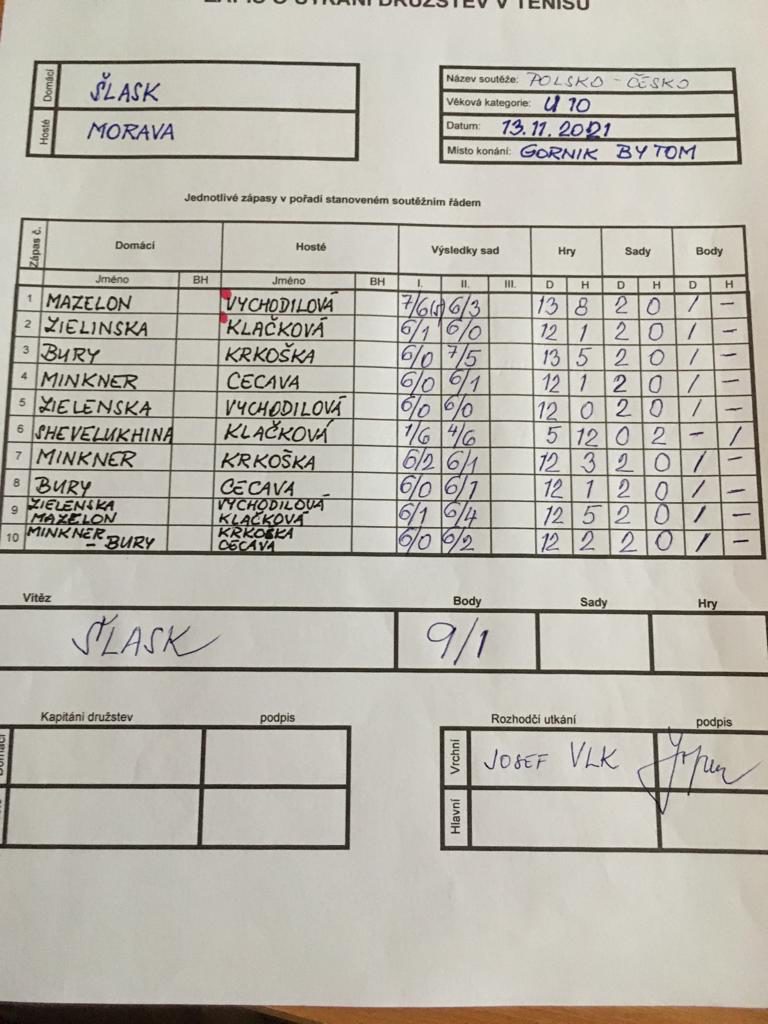 ZÁPIS O UTKÁNÍ DRUŽSTEV V TENISU
Domácí ŠLASK
Hosté MORAVA
Název soutěže: POLSKO - ČESKO
Věková kategorie: U 10
Datum: 13.11.2021
Místo konání: GORNIK BYTOM
Jednotlivé zápasy v pořadí stanoveném soutěžním řádem
Zápas č. Domácí Hosté Výsledky sad Hry Sady Body
Jméno BH Jméno BH I. II. III. D H D H D H
1 MAZELON VYCHODILOVÁ 7/6(5) 6/3 13 8 2 0 / -
2 ZIELINSKA KLAČKOVÁ 6/1 6/0 12 1 2 0 / -
3 BURY KRKOŠKA 6/0 7/5 13 5 2 0 / -
4 MINKNER CECAVA 6/0 6/1 12 1 2 0 / -
5 ZIELENSKA VYCHODILOVÁ 6/0 6/0 12 0 2 0 / -
6 SHEVELUKHINA KLAČKOVÁ 1/6 4/6 5 12 0 2 - /
7 MINKNER KRKOŠKA 6/2 6/1 12 3 2 0 / -
8 BURY CECAVA 6/0 6/1 12 1 2 0 / -
9 ZIELENSKA MAZELON VYCHODILOVÁ KLAČKOVÁ 6/1 6/4 12 5 2 0 / -
10 MINKNER - BURY KRKOŠKA CECAVA 6/0 6/2 12 2 2 0 / -
Vítěz Body Sady Hry
ŠLASK 9/1
Kapitáni družstev podpis
Rozhodčí utkání podpis
Vrchní JOSEF VLK
Hlavní